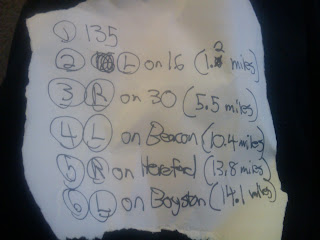 ① 135
② Ⓛ on 16 (1.2 miles)
③ Ⓡ on 30 (5.5 miles)
④ Ⓛ on Beacon (10.4 miles)
⑤ Ⓡ on Hereford (13.8 miles)
⑥ Ⓛ on Boyston (14.1 miles)